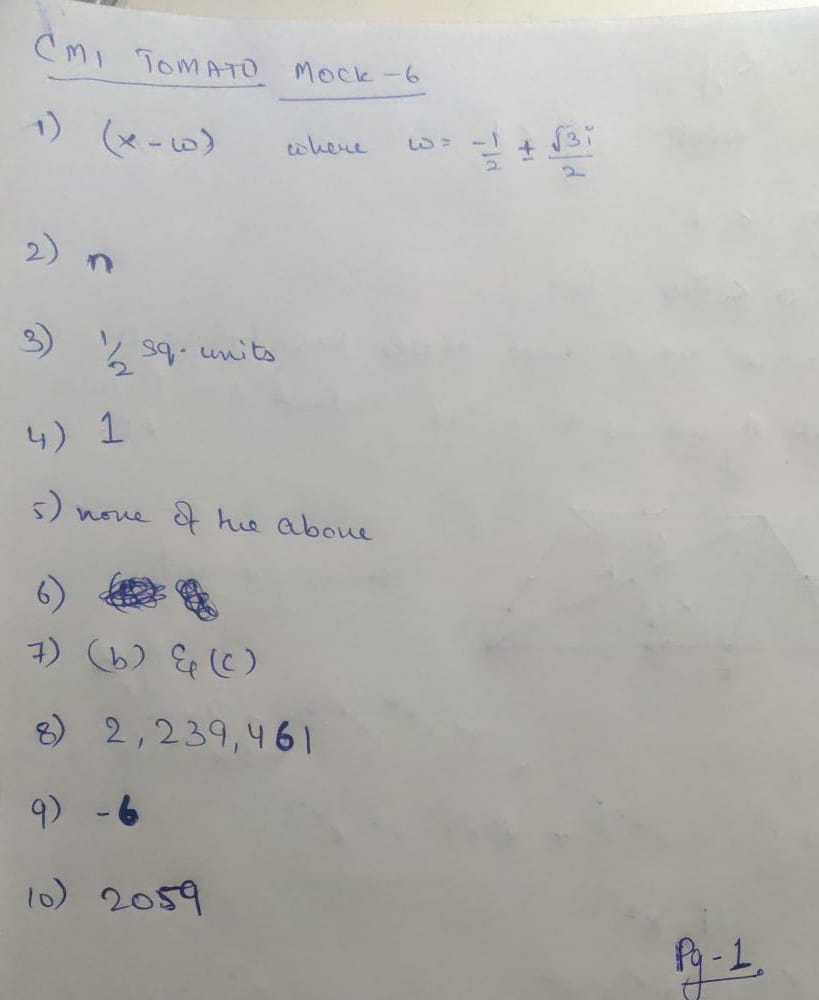 CMI TOMATO MOCK-6
1) (x-ω) where ω= -1/2 ± √3i/2
2) n
3) 1/2 sq. units
4) 1
5) none of the above
6)
7) (b) & (c)
8) 2,239,461
9) -6
10) 2059
Pg-1.